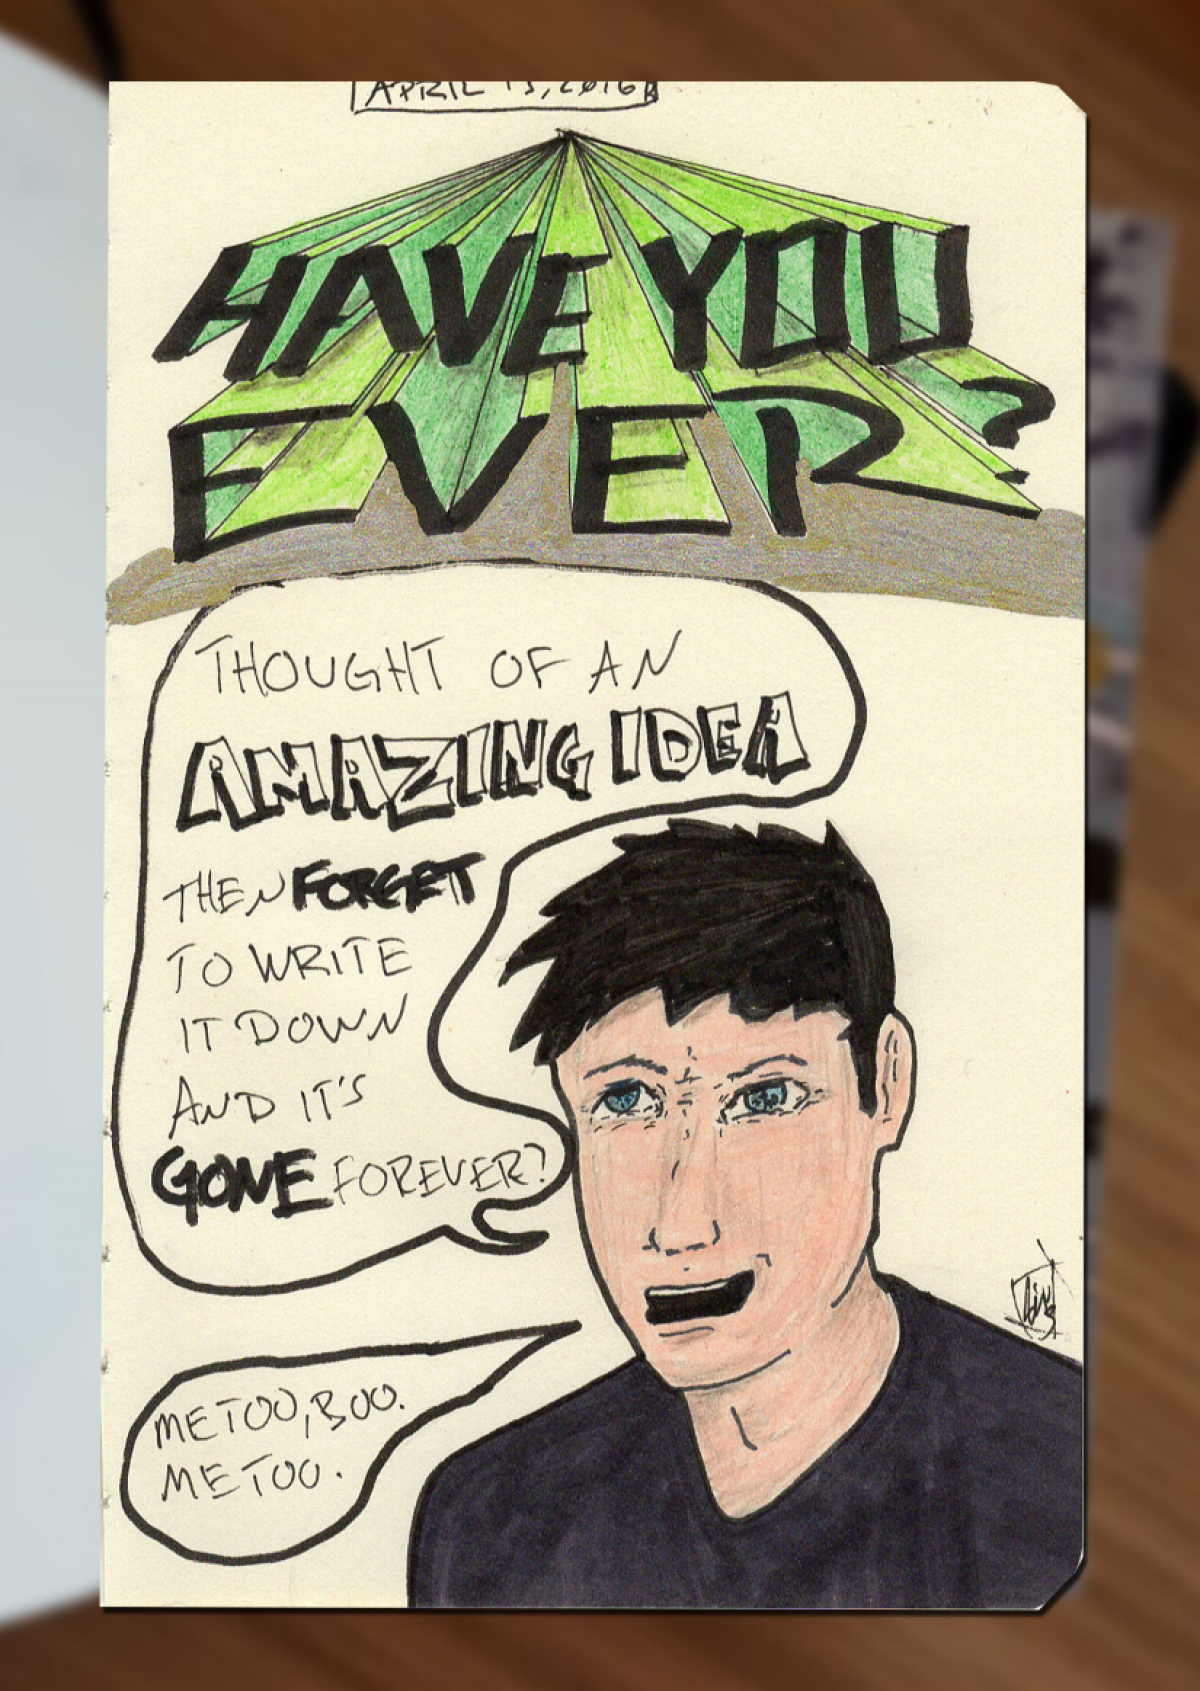 APRIL
HAVE YOU
EVER?
THOUGHT OF AN
AMAZING IDEA
THEN FORGET
TO WRITE
IT DOWN
AND IT'S
GONE FOREVER?
ME TOO, BOO.
ME TOO.